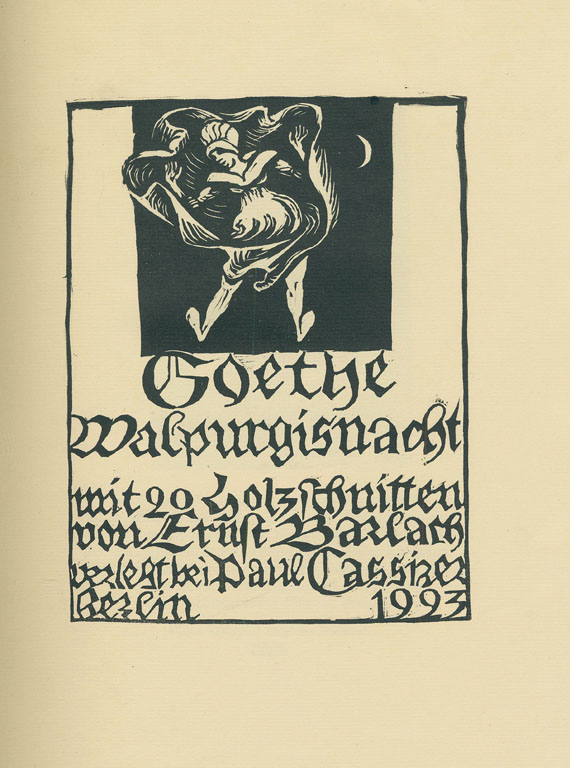 Goethe
Walpurgisnacht
mit 20 Holzschnitten
von Ernst Barlach
verlegt bei Paul Cassirer
Berlin 1923